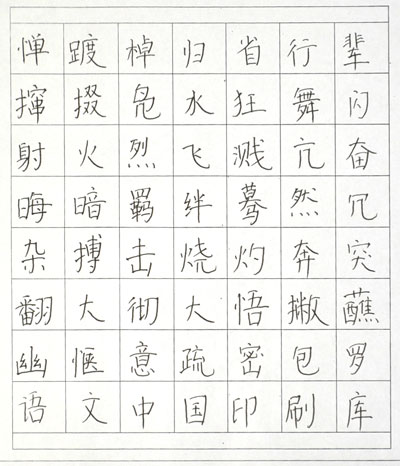 惮踱棹归省行辈
撺掇凫水狂舞闪
射火烈飞溅亢奋
晦暗羁绊蓦然冗
杂搏击烧灼奔突
翻大彻大悟撇蘸
幽惬意疏密包罗
语文中国印刷库